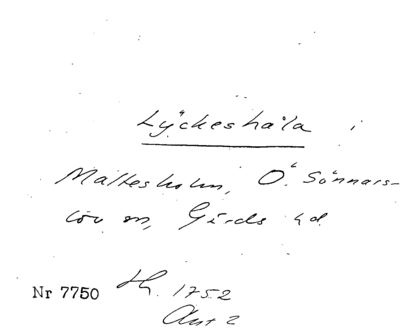 Lyckeshåla i
Maltesholm, Ö. Sönnars-
löv sn, Gärds hd.
Nr 7750 Hh. 1752
Akt 2